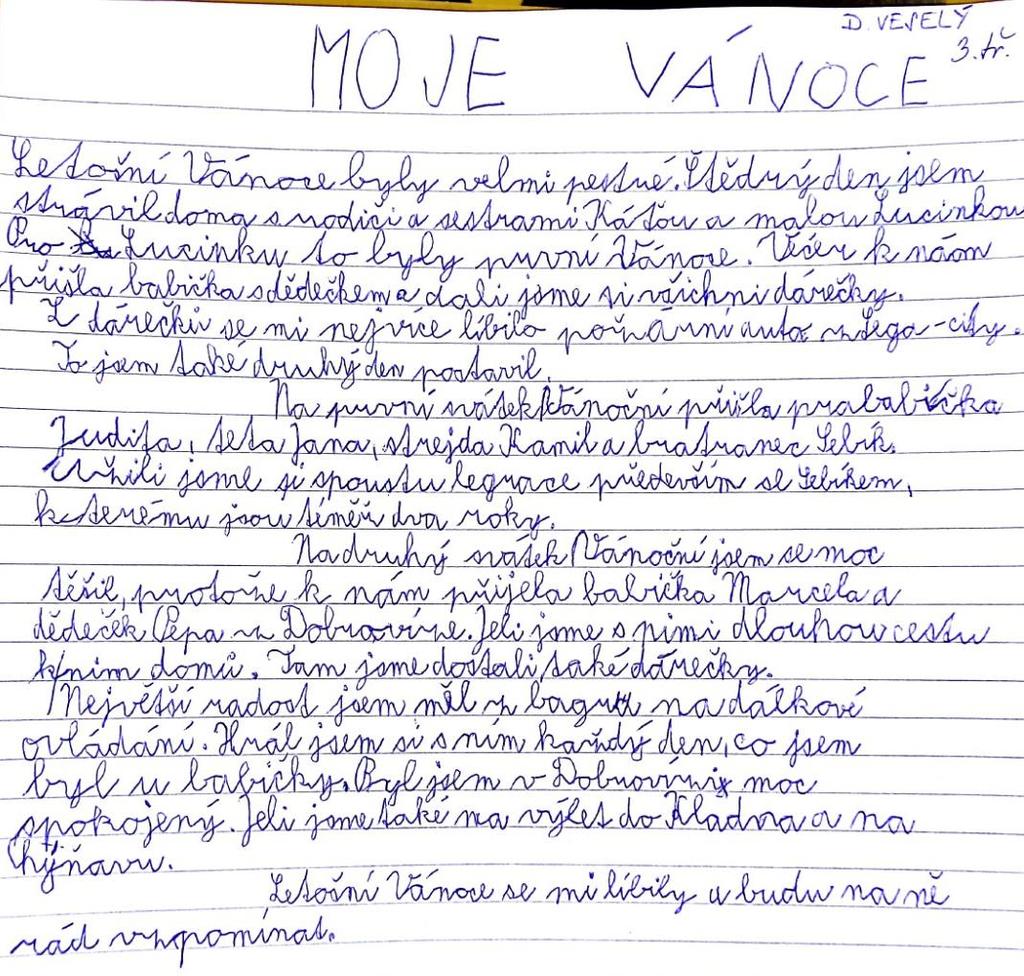 D. VESELÝ
3. tř.
MOJE VÁNOCE
Letošní Vánoce byly velmi pestré. Štědrý den jsem
strávil doma s rodiči a sestrami Káťou a malou Lucinkou
Pro Lucinku to byly první Vánoce. Večer k nám
přišla babička s dědečkem a dali jsme si všichni dárečky.
Z dárečků se mi nejvíce líbilo požární auto z Lega-city.
To jsem také druhý den postavil.
Na první svátek Vánoční přišla prababička
Judita, teta Jana, strejda Kamil a bratranec Sebík.
Užili jsme si spoustu legrace především se Sebíkem,
kterému jsou téměř dva roky.
Na druhý svátek Vánoční jsem se moc
těšil, protože k nám přijela babička Marcela a
dědeček Pepa z Dobrovíze. Jeli jsme s nimi dlouhou cestu
k nim domů. Tam jsme dostali také dárečky.
Největší radost jsem měl z bagru na dálkové
ovládání. Hrál jsem si s ním každý den, co jsem
byl u babičky. Byl jsem v Dobrovízi moc
spokojený. Jeli jsme také na výlet do Kladna a na
Chýňavu.
Letošní Vánoce se mi líbily a budu na ně
rád vzpomínat.